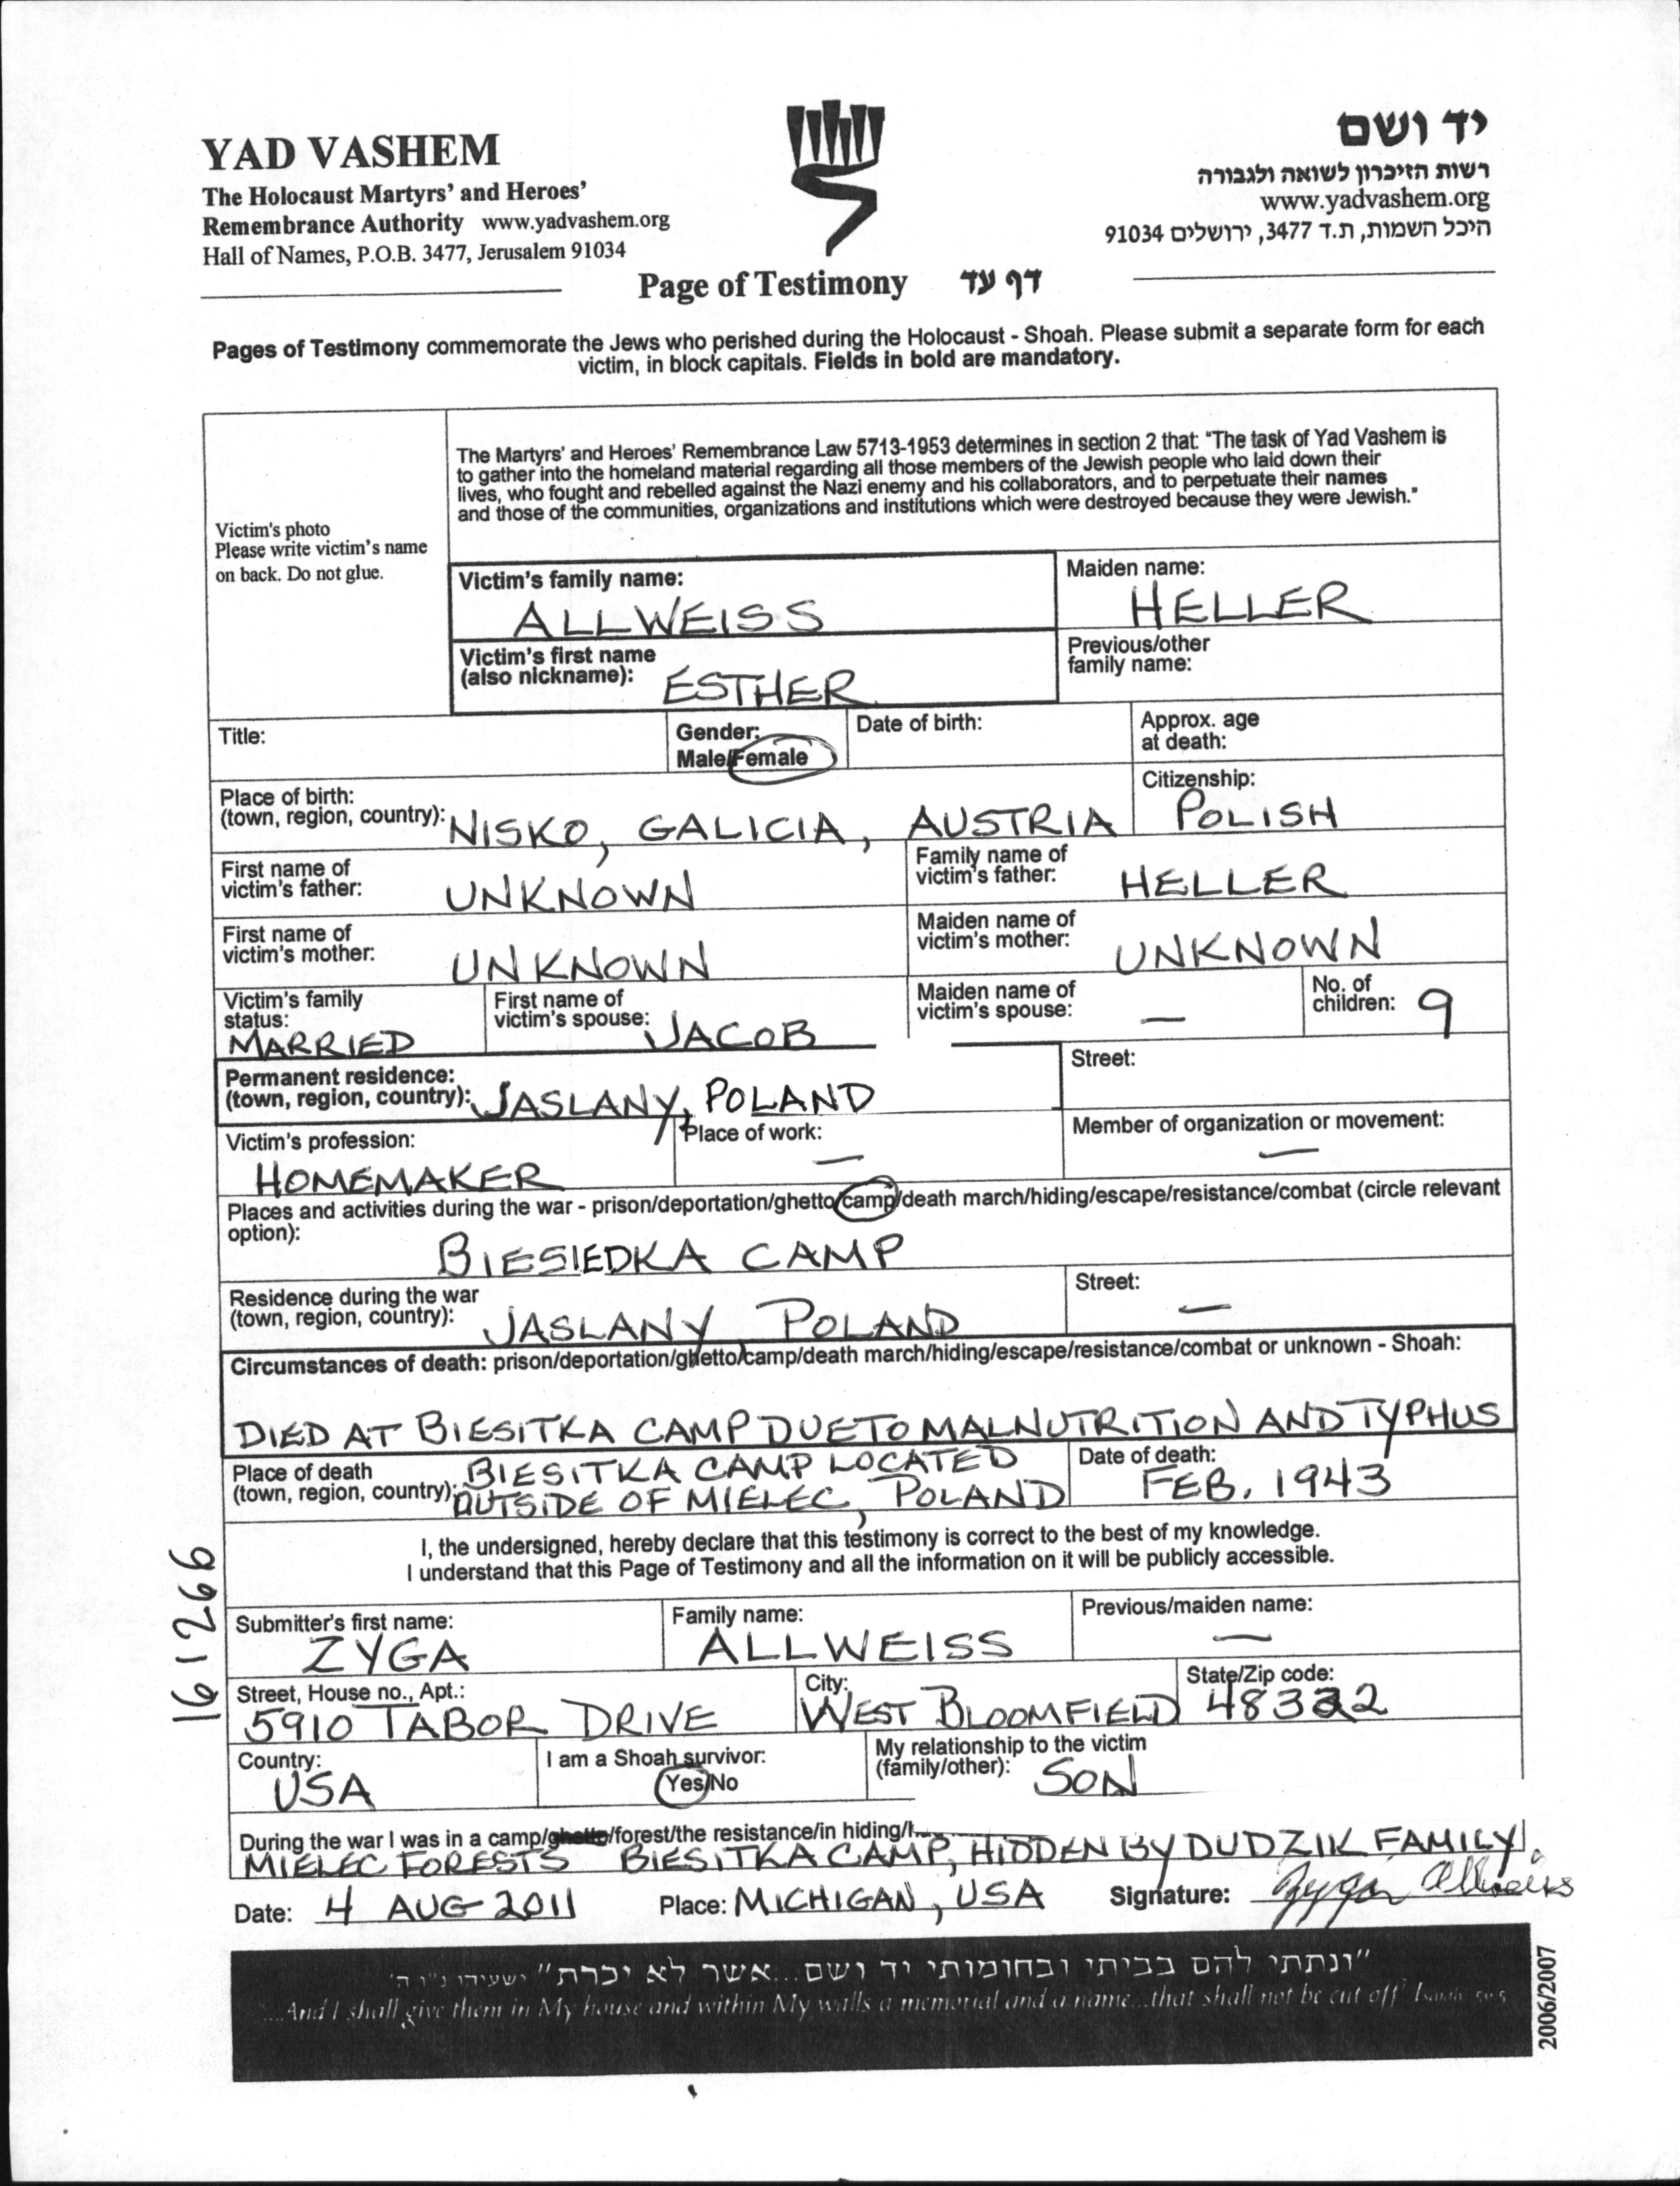 YAD VASHEM
The Holocaust Martyrs' and Heroes'
Remembrance Authority www.yadvashem.org
Hall of Names, P.O.B. 3477, Jerusalem 91034
יד ושם
רשות הזיכרון לשואה ולגבורה
www.yadvashem.org
היכל השמות, ת.ד 3477, ירושלים 91034
Page of Testimony דף עד
Pages of Testimony commemorate the Jews who perished during the Holocaust - Shoah. Please submit a separate form for each
victim, in block capitals. Fields in bold are mandatory.
The Martyrs' and Heroes' Remembrance Law 5713-1953 determines in section 2 that: "The task of Yad Vashem is
to gather into the homeland material regarding all those members of the Jewish people who laid down their
lives, who fought and rebelled against the Nazi enemy and his collaborators, and to perpetuate their names
and those of the communities, organizations and institutions which were destroyed because they were Jewish."
Victim's photo
Please write victim's name
on back. Do not glue.
Victim's family name:
ALLWEISS
Maiden name:
HELLER
Victim's first name
(also nickname): ESTHER
Previous/other
family name:
Title:
Gender:
Male/Female
Date of birth:
Approx. age
at death:
Place of birth:
(town, region, country): NISKO, GALICIA, AUSTRIA
Citizenship:
POLISH
First name of
victim's father: UNKNOWN
Family name of
victim's father: HELLER
First name of
victim's mother: UNKNOWN
Maiden name of
victim's mother: UNKNOWN
Victim's family
status:
MARRIED
First name of
victim's spouse: JACOB
Maiden name of
victim's spouse: —
No. of
children: 9
Permanent residence:
(town, region, country): JASLANY, POLAND
Street:
Victim's profession:
HOMEMAKER
Place of work:
—
Member of organization or movement:
—
Places and activities during the war - prison/deportation/ghetto/camp/death march/hiding/escape/resistance/combat (circle relevant
option):
BIESIEDKA CAMP
Residence during the war
(town, region, country): JASLANY, POLAND
Street:
—
Circumstances of death: prison/deportation/ghetto/camp/death march/hiding/escape/resistance/combat or unknown - Shoah:
DIED AT BIESITKA CAMP DUE TO MALNUTRITION AND TYPHUS
Place of death
(town, region, country): BIESITKA CAMP LOCATED
OUTSIDE OF MIELEC, POLAND
Date of death:
FEB. 1943
I, the undersigned, hereby declare that this testimony is correct to the best of my knowledge.
I understand that this Page of Testimony and all the information on it will be publicly accessible.
16 1266
Submitter's first name:
ZYGA
Family name:
ALLWEISS
Previous/maiden name:
—
Street, House no., Apt.:
5910 TABOR DRIVE
City:
WEST BLOOMFIELD
State/Zip code:
48322
Country:
USA
I am a Shoah survivor:
Yes/No
My relationship to the victim
(family/other): SON
During the war I was in a camp/ghetto/forest/the resistance/in hiding/
MIELEC FORESTS BIESITKA CAMP, HIDDEN BY DUDZIK FAMILY.
Date: 4 AUG 2011 Place: MICHIGAN, USA Signature: Zyga Allweiss
"ונתתי להם בביתי ובחומותי יד ושם...אשר לא יכרת" ישעיהו נ"ו ה'
...And I shall give them in My house and within My walls a memorial and a name...that shall not be cut off" Isaiah 56:5
2006/2007